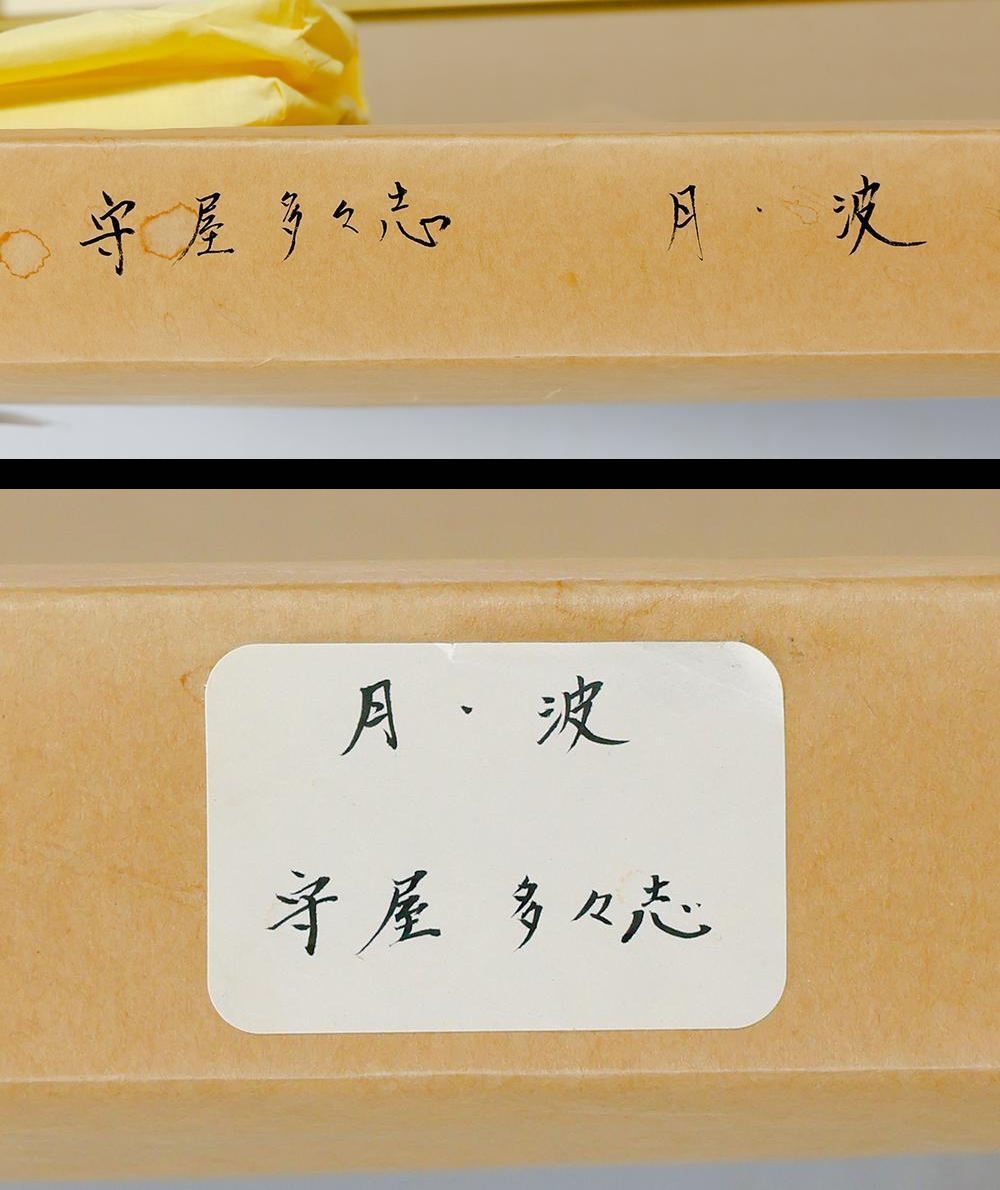 守屋多々志 月・波
月・波
守屋 多々志